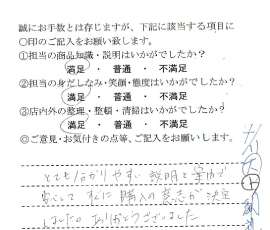 誠にお手数とは存じますが、下記に該当する項目に
〇印のご記入をお願い致します。
①担当の商品知識・説明はいかがでしたか?
満足 ・ 普通 ・ 不満足
②担当の身だしなみ・笑顔・態度はいかがでしたか?
満足 ・ 普通 ・ 不満足
③店内外の整理・整頓・清掃はいかがでしたか?
満足 ・ 普通 ・ 不満足
◎ご意見・お気付きの点等、ご記入をお願いします。
とても分かりやすい説明と案内で
安心して すぐに購入の意志が決定
しました。ありがとうございました